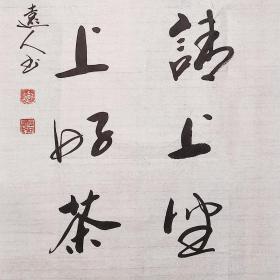 請上坐
上好茶
遠人书